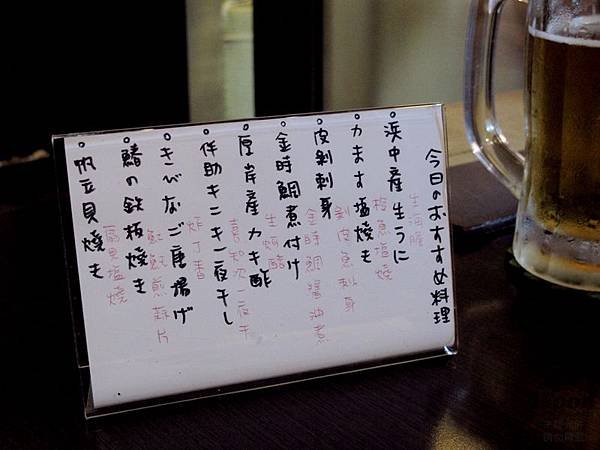 今日のおすすめ料理
浜中産生うに
生海膽
カます塩焼き
梭魚塩燒
皮剥刺身
剝皮魚刺身
金時鯛煮付け
金時鯛醬油煮
厚岸産カキ酢
生蚵醋
伴助キンキ一夜干し
喜知次一夜干
きびなご唐揚げ
炸丁香
鰆の鉄板焼き
帆立貝焼き
扇貝塩燒